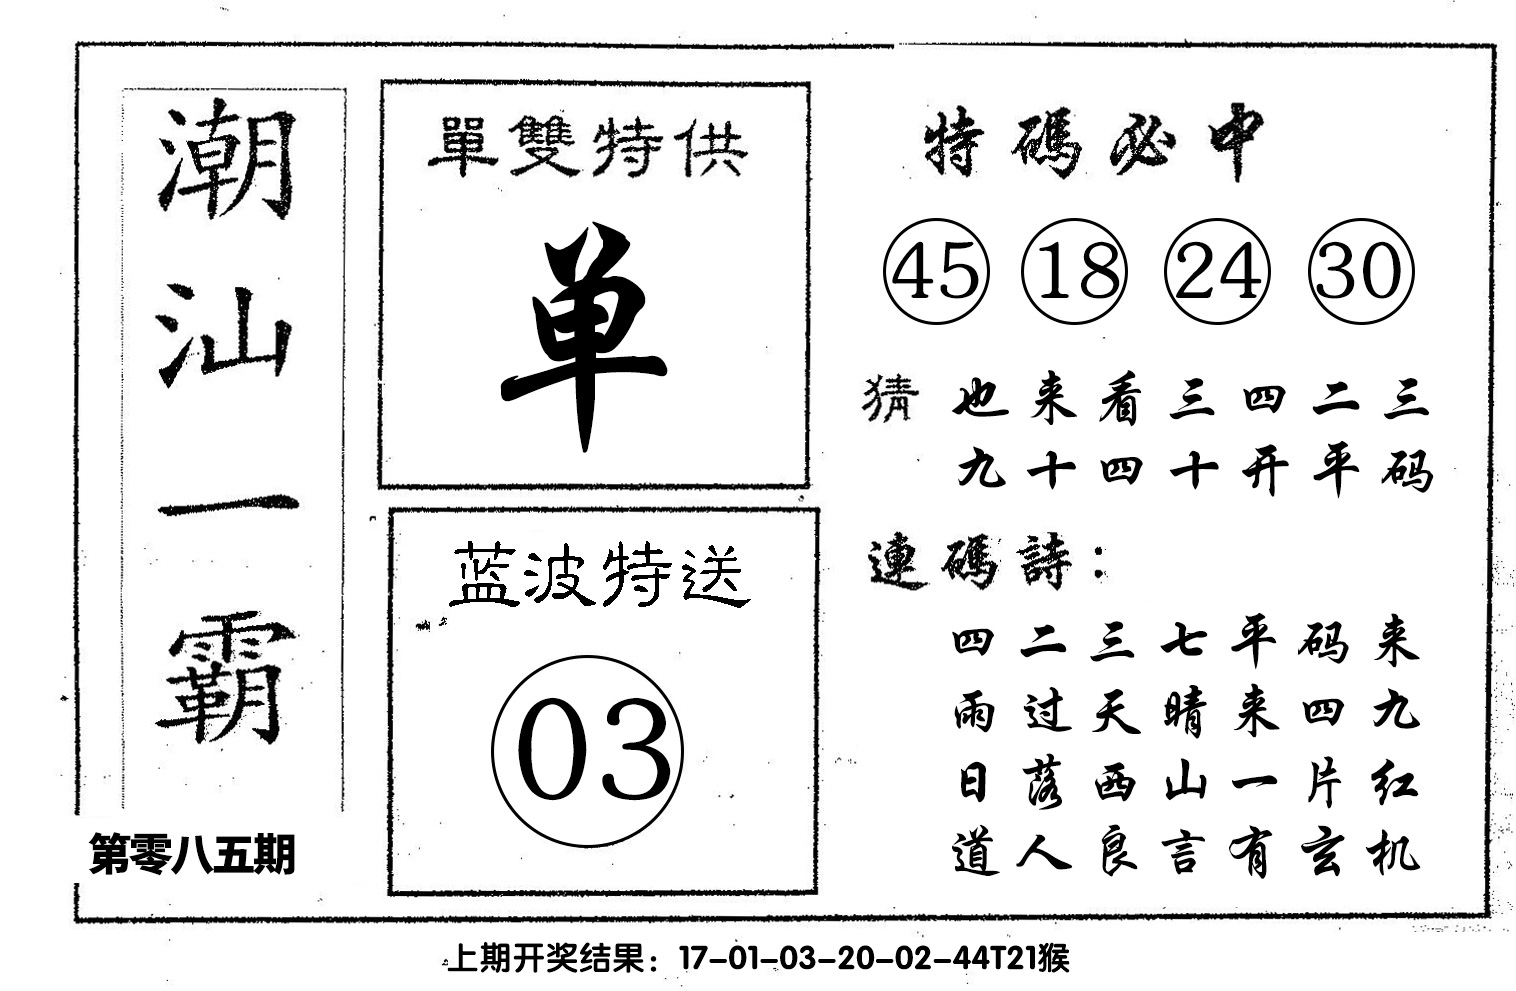 潮汕一霸
第零八五期
單雙特供
单
蓝波特送
03
特碼必中
45 18 24 30
猜 也来看三四二三
九十四十开平码
連碼詩：
四二三七平码来
雨过天晴来四九
日落西山一片红
道人良言有玄机
上期开奖结果：17-01-03-20-02-44T21猴